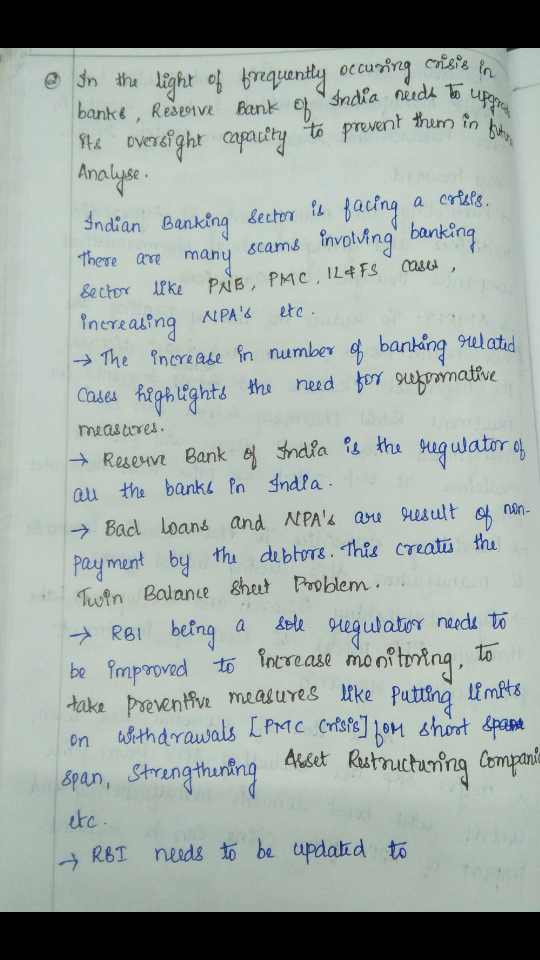 ② In the light of frequently occuring crisis in
banks, Reserve Bank of India needs to upgrade
its oversight capacity to prevent them in future
Analyse.
Indian Banking Sector is facing a crisis.
there are many scams involving banking
sector like PNB, PMC, IL&FS cases,
increasing NPA's etc.
→ The increase in number of banking related
cases highlights the need for reformative
measures.
→ Reserve Bank of India is the regulator of
all the banks in India.
→ Bad loans and NPA's are result of non-
payment by the debtors. This creates the
Twin Balance Sheet Problem.
→ RBI being a sole regulator needs to
be improved to increase monitoring, to
take preventive measures like putting limits
on withdrawals [PMC Crisis] for short
span, Strengthening Asset Restructuring Companie
etc.
→ RBI needs to be updated to